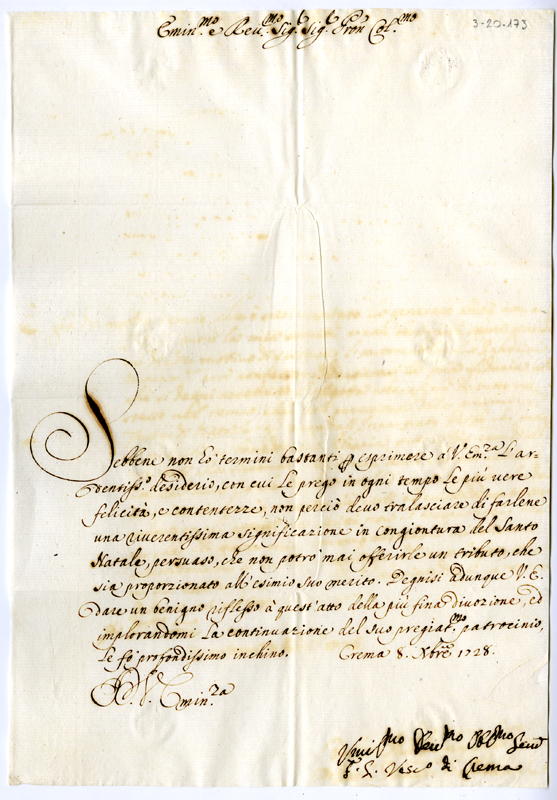 3-20-173
Emin.mo e Rev.mo Sig.r Sig.r Pron Col.mo
Sebbene non hò termini bastanti p esprimere à V. Em.za l'ar-
dentiss.o desiderio, con cui le prego in ogni tempo le più vere
felicità, e contentezze, non perciò devo tralasciare di farlene
una riverentissima significazione in congiontura del Santo
Natale, persuaso, che non potrò mai offerirle un tributo, che
sia proporzionato all'esimio suo merito. Degnisi adunque V. E.
dare un benigno riflesso à quest'atto della più fina divozione, ed
implorandomi la continuazione del suo pregiat.mo patrocinio,
le fò profondissimo inchino. Crema 8. Xbre 1728.
D. V. Emin.za
Umi.mo Dev.mo Obl.mo Serv.
Vesc.o di Crema